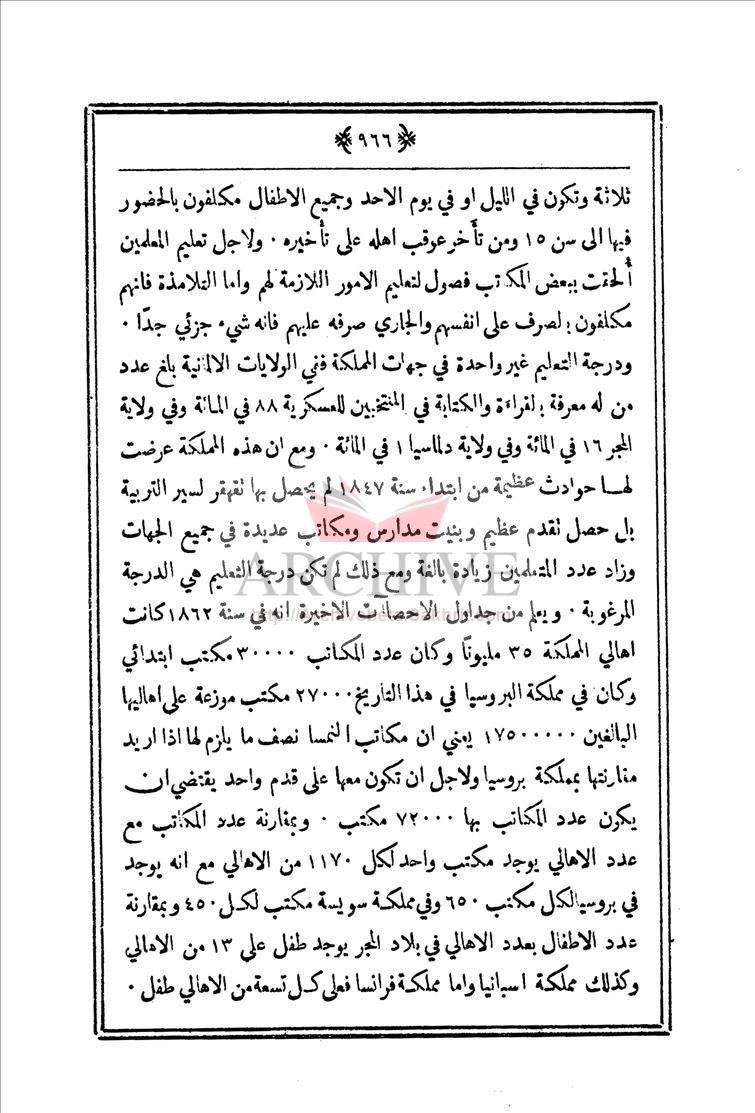 ٩٦٦
ثلاثة وتكون في الليل او في يوم الاحد وجميع الاطفال مكلفون بالحضور
فيها الى سن ١٥ ومن تأخر عوقب اهله على تأخيره ٠ ولاجل تعليم المعلمين
أُلحقت ببعض المكاتب فصول لتعليم الامور اللازمة لهم واما التلامذة فانهم
مكلفون بالصرف على انفسهم والجاري صرفه عليهم فانه شيء جزئي جدًا ٠
ودرجة التعليم غير واحدة في جهات المملكة ففي الولايات الالمانية بلغ عدد
من له معرفة بالقراءة والكتابة في المنتخبين للعسكرية ٨٨ في المائة وفي ولاية
المجر ١٦ في المائة وفي ولاية دلماسيا ١ في المائة ٠ ومع ان هذه المملكة عرضت
لها حوادث عظيمة من ابتداء سنة ١٨٤٧ لم يحصل بها تقهقر لسير التربية
بل حصل تقدم عظيم وبنيت مدارس ومكاتب عديدة في جميع الجهات
ARCHIVE
وزاد عدد المتعلمين زيادة بالغة ومع ذلك لم تكن درجة التعليم هي الدرجة
المرغوبة ٠ ويعلم من جداول الاحصاآت الاخيرة انه في سنة ١٨٦٢ كانت
اهالي المملكة ٣٥ مليونًا وكان عدد المكاتب ٣٠٠٠٠ مكتب ابتدائي
وكان في مملكة البروسيا في هذا التاريخ ٢٧٠٠٠ مكتب موزعة على اهاليها
البالغين ١٧٥٠٠٠٠٠ يعني ان مكاتب النمسا نصف ما يلزم لها اذا اريد
مقارنتها بمملكة بروسيا ولاجل ان تكون معها على قدم واحد يقتضي ان
يكون عدد المكاتب بها ٧٢٠٠٠ مكتب ٠ وبمقارنة عدد المكاتب مع
عدد الاهالي يوجد مكتب واحد لكل ١١٧٠ من الاهالي مع انه يوجد
في بروسيا لكل مكتب ٦٥٠ وفي مملكة سويسة مكتب لكل ٤٥٠ وبمقارنة
عدد الاطفال بعدد الاهالي في بلاد المجر يوجد طفل على ١٣ من الاهالي
وكذلك مملكة اسبانيا واما مملكة فرانسا فعلى كل تسعة من الاهالي طفل ٠